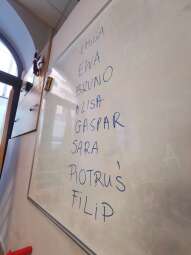 EDVA
BRUNO
ALISA
GASPAR
SARA
PIOTRUŚ
FILIP